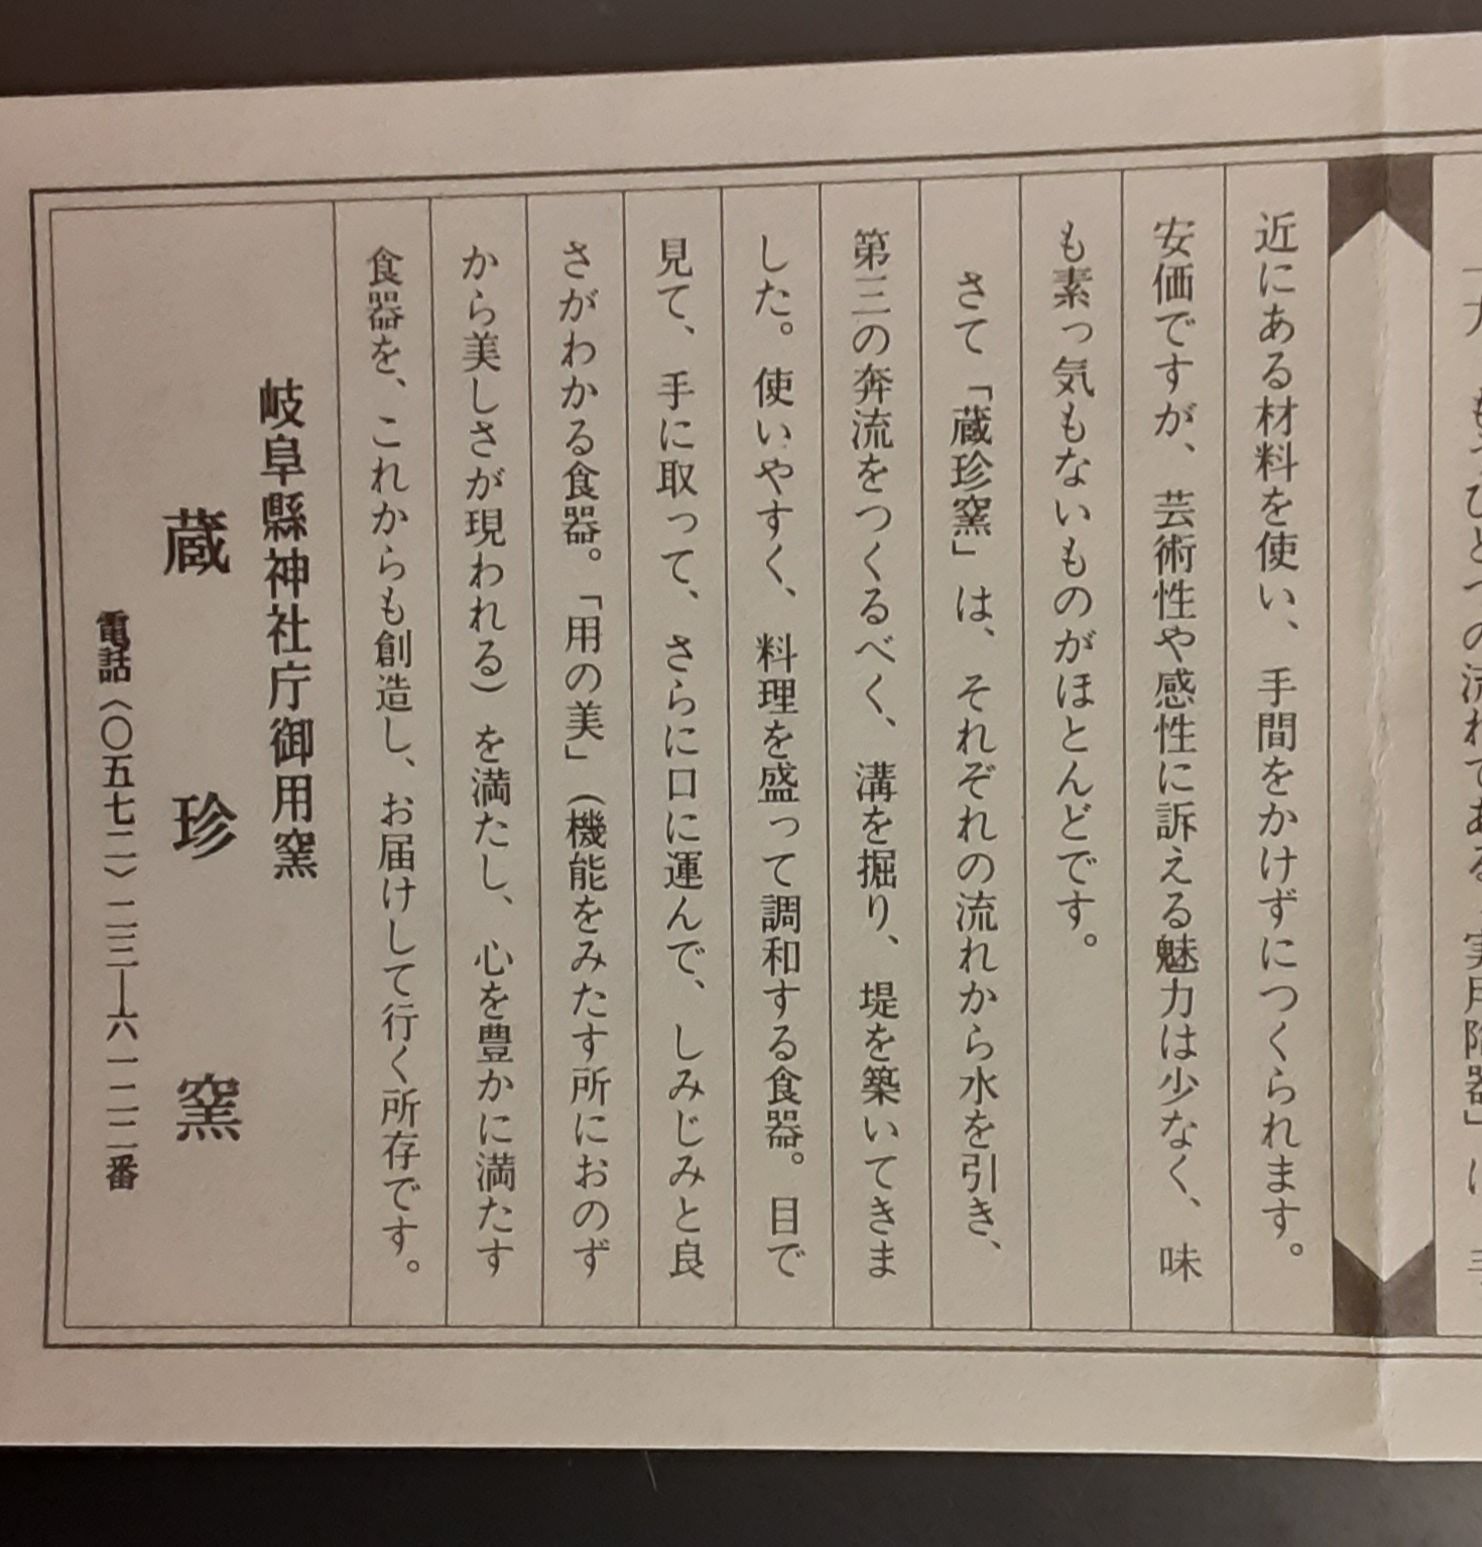 一方 もうひとつの流れである 実用陶器」は
近にある材料を使い、手間をかけずにつくられます。
安価ですが、芸術性や感性に訴える魅力は少なく、味
も素っ気もないものがほとんどです。
さて「蔵珍窯」は、それぞれの流れから水を引き、
第三の奔流をつくるべく、溝を掘り、堤を築いてきま
した。使いやすく、料理を盛って調和する食器。目で
見て、手に取って、さらに口に運んで、しみじみと良
さがわかる食器。「用の美」（機能をみたす所におのず
から美しさが現われる）を満たし、心を豊かに満たす
食器を、これからも創造し、お届けして行く所存です。
岐阜縣神社庁御用窯
蔵珍窯
電話〈〇五七二〉二三―六一二二番